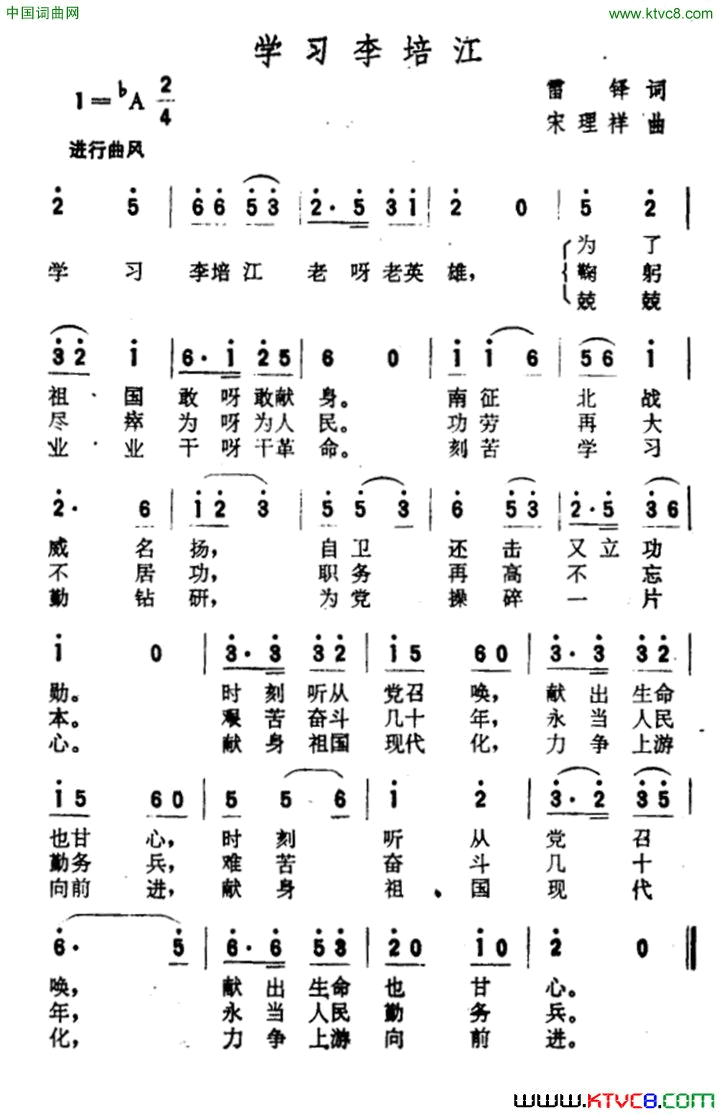 中国词曲网
www.ktvc8.com
学习李培江
1=♭A 2/4
雷铎词
宋理祥曲
进行曲风
2 5 | 66 53 | 2·5 31 | 2 0 | 5 2
为了
学习 李培江 老呀老英雄, 鞠躬
兢兢
32 1 | 6·1 25 | 6 0 | 1 1 6 | 56 1
祖国敢呀敢献身。 南征北战
尽瘁为呀为人民。 功劳再大
业业干呀干革命。 刻苦学习
2· 6 | 12 3 | 5 5 3 | 6 53 | 2·5 36
威名扬, 自卫还击又立功
不居功, 职务再高不忘
勤钻研, 为党操碎一片
1 0 | 3·3 32 | 15 60 | 3·3 32
勋。 时刻听从党召唤, 献出生命
本。 艰苦奋斗几十年, 永当人民
心。 献身祖国现代化, 力争上游
15 60 | 5 5 6 | 1 2 | 3·2 35
也甘心, 时刻听从党召
勤务兵, 难苦奋斗几十
向前进, 献身祖国现代
6· 5 | 6·6 53 | 20 10 | 2 0
唤, 献出生命也甘心。
年, 永当人民勤务兵。
化, 力争上游向前进。
www.KTVC8.com